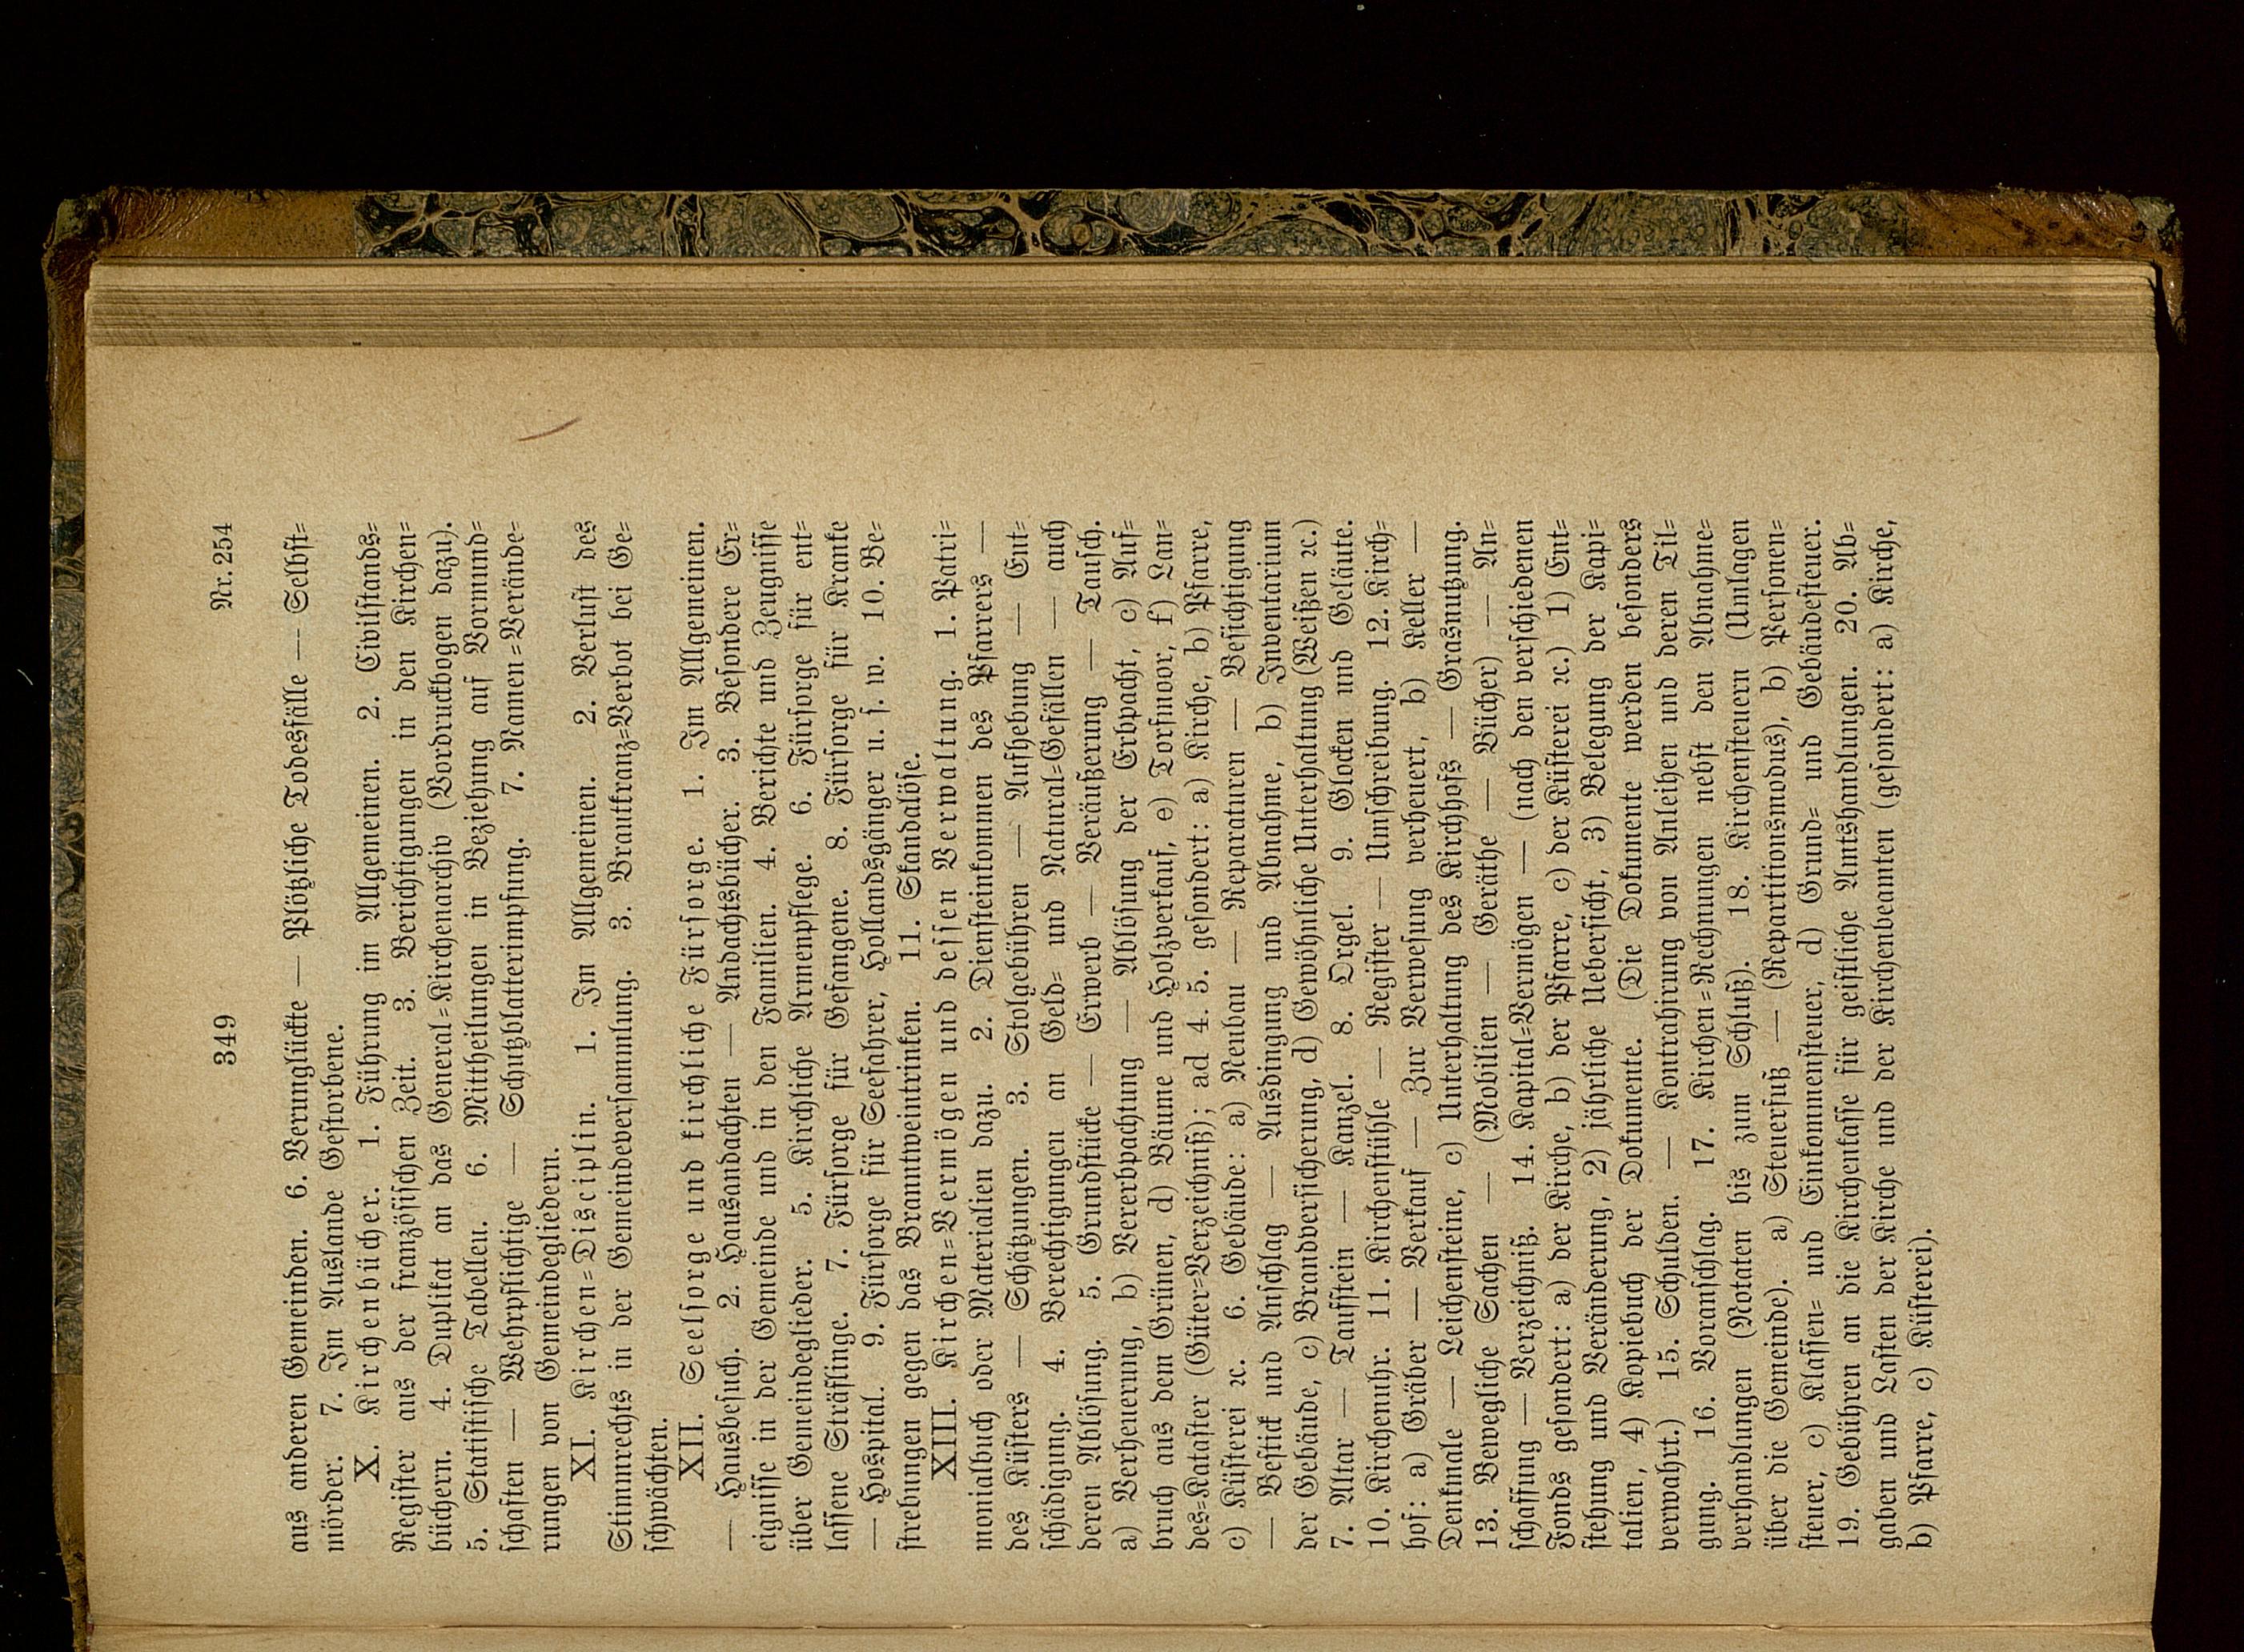 349
Nr. 254
aus anderen Gemeinden. 6. Verunglückte — Plötzliche Todesfälle — Selbst-
mörder. 7. Im Auslande Gestorbene.
X. Kirchenbücher. 1. Führung im Allgemeinen. 2. Civilstands-
Register aus der französischen Zeit. 3. Berichtigungen in den Kirchen-
büchern. 4. Duplikat an das General-Kirchenarchiv (Vordruckbogen dazu).
5. Statistische Tabellen. 6. Mittheilungen in Beziehung auf Vormund-
schaften — Wehrpflichtige — Schutzblatterimpfung. 7. Namen-Verände-
rungen von Gemeindegliedern.
XI. Kirchen-Disciplin. 1. Im Allgemeinen. 2. Verlust des
Stimmrechts in der Gemeindeversammlung. 3. Brautkranz-Verbot bei Ge-
schwächten.
XII. Seelsorge und kirchliche Fürsorge. 1. Im Allgemeinen.
— Hausbesuch. 2. Hausandachten — Andachtsbücher. 3. Besondere Er-
eignisse in der Gemeinde und in den Familien. 4. Berichte und Zeugnisse
über Gemeindeglieder. 5. Kirchliche Armenpflege. 6. Fürsorge für ent-
lassene Sträflinge. 7. Fürsorge für Gefangene. 8. Fürsorge für Kranke
— Hospital. 9. Fürsorge für Seefahrer, Hollandsgänger u. s. w. 10. Be-
strebungen gegen das Branntweintrinken. 11. Skandalöse.
XIII. Kirchen-Vermögen und dessen Verwaltung. 1. Patri-
monialbuch oder Materialien dazu. 2. Diensteinkommen des Pfarrers —
des Küsters — Schätzungen. 3. Stolgebühren — Aufhebung — Ent-
schädigung. 4. Berechtigungen an Geld- und Natural-Gefällen — auch
deren Ablösung. 5. Grundstücke — Erwerb — Veräußerung — Tausch.
a) Verheuerung, b) Vererbpachtung — Ablösung der Erbpacht, c) Auf-
bruch aus dem Grünen, d) Bäume und Holzverkauf, e) Torfmoor, f) Lan-
des-Kataster (Güter-Verzeichniß); ad 4. 5. gesondert: a) Kirche, b) Pfarre,
c) Küsterei ꝛc. 6. Gebäude: a) Neubau — Reparaturen — Besichtigung
— Bestick und Anschlag — Ausdingung und Abnahme, b) Inventarium
der Gebäude, c) Brandversicherung, d) Gewöhnliche Unterhaltung (Weißen ꝛc.)
7. Altar — Taufstein — Kanzel. 8. Orgel. 9. Glocken und Geläute.
10. Kirchenuhr. 11. Kirchenstühle — Register — Umschreibung. 12. Kirch-
hof: a) Gräber — Verkauf — Zur Verwesung verheuert, b) Keller —
Denkmale — Leichensteine, c) Unterhaltung des Kirchhofs — Grasnutzung.
13. Bewegliche Sachen — (Mobilien — Geräthe — Bücher) — An-
schaffung — Verzeichniß. 14. Kapital-Vermögen — (nach den verschiedenen
Fonds gesondert: a) der Kirche, b) der Pfarre, c) der Küsterei ꝛc.) 1) Ent-
stehung und Veränderung, 2) jährliche Uebersicht, 3) Belegung der Kapi-
talien, 4) Kopiebuch der Dokumente. (Die Dokumente werden besonders
verwahrt.) 15. Schulden. — Kontrahirung von Anleihen und deren Til-
gung. 16. Voranschlag. 17. Kirchen-Rechnungen nebst den Abnahme-
verhandlungen (Notaten bis zum Schluß). 18. Kirchensteuern (Umlagen
über die Gemeinde). a) Steuerfuß — (Repartitionsmodus), b) Personen-
steuer, c) Klassen- und Einkommensteuer, d) Grund- und Gebäudesteuer.
19. Gebühren an die Kirchenkasse für geistliche Amtshandlungen. 20. Ab-
gaben und Lasten der Kirche und der Kirchenbeamten (gesondert: a) Kirche,
b) Pfarre, c) Küsterei).